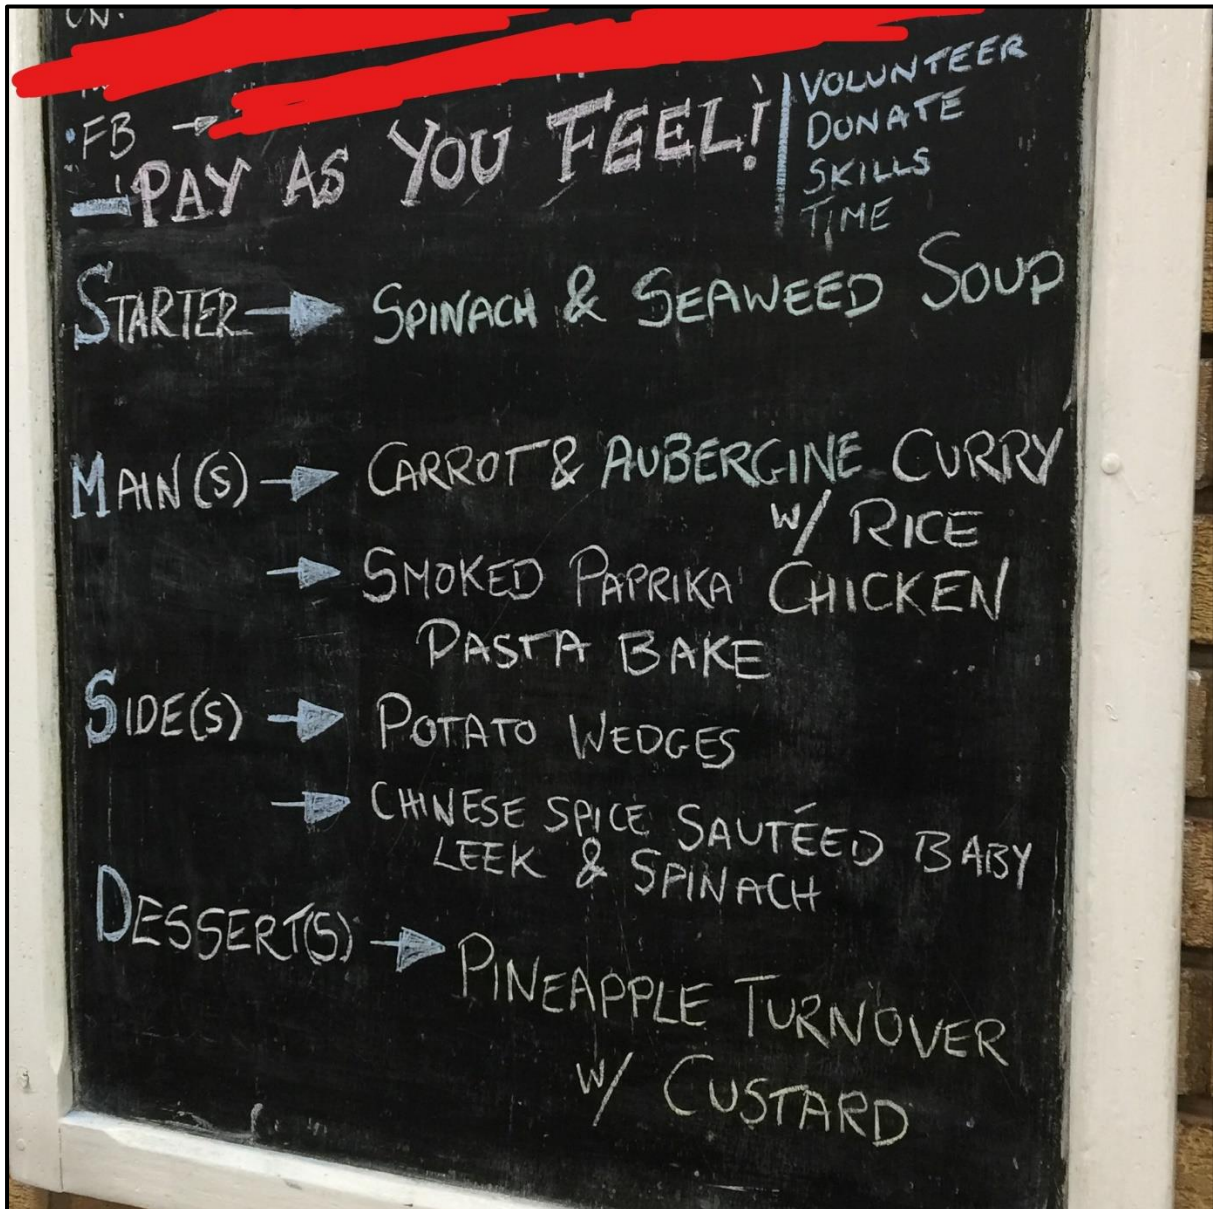 ON:
• FB →
- PAY AS YOU FEEL!
VOLUNTEER
DONATE
SKILLS
TIME
STARTER → SPINACH & SEAWEED SOUP
MAIN(S) → CARROT & AUBERGINE CURRY
W/ RICE
→ SMOKED PAPRIKA CHICKEN
PASTA BAKE
SIDE(S) → POTATO WEDGES
→ CHINESE SPICE SAUTÉED BABY
LEEK & SPINACH
DESSERT(S) → PINEAPPLE TURNOVER
W/ CUSTARD